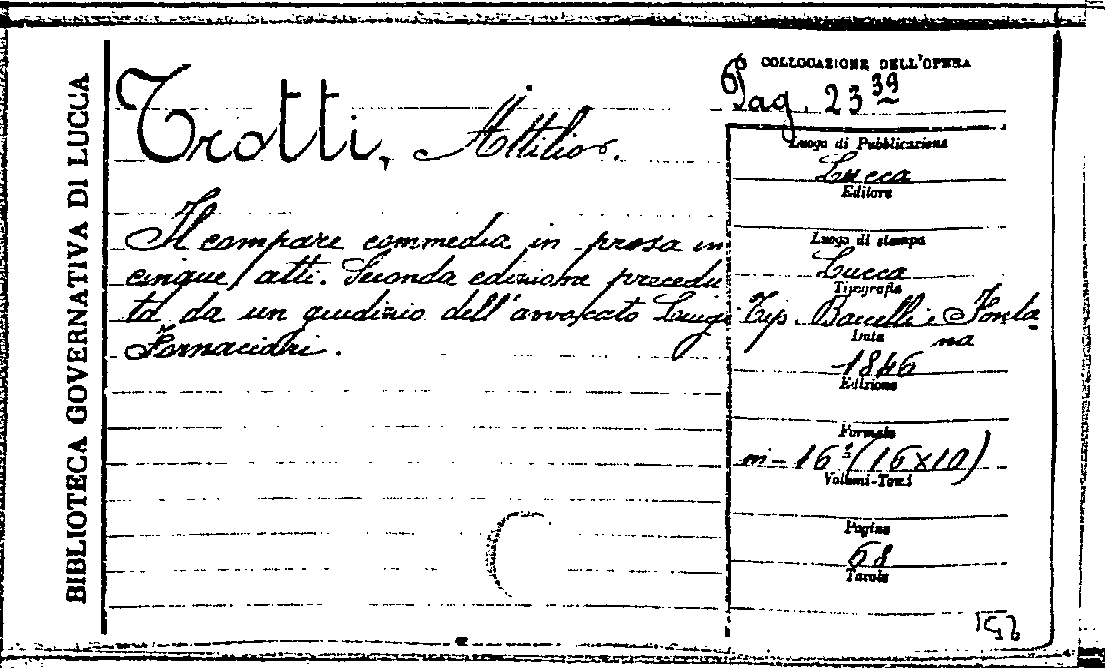 BIBLIOTECA GOVERNATIVA DI LUCCA
Trotti, Attilio.
Il compare commedia in prosa in
cinque atti. Seconda edizione precedu
ta da un giudizio dell'avvocato Luigi
Fornaciari.
COLLOCAZIONE DELL'OPERA
Pag. 23 39
Luogo di Pubblicazione
Lucca
Editore
Luogo di stampa
Lucca
Tipografia
Tip. Baccelli e Fonta
na
Data
1846
Edizione
Formato
in-16º (16x10)
Volumi-Tomi
Pagine
68
Tavole